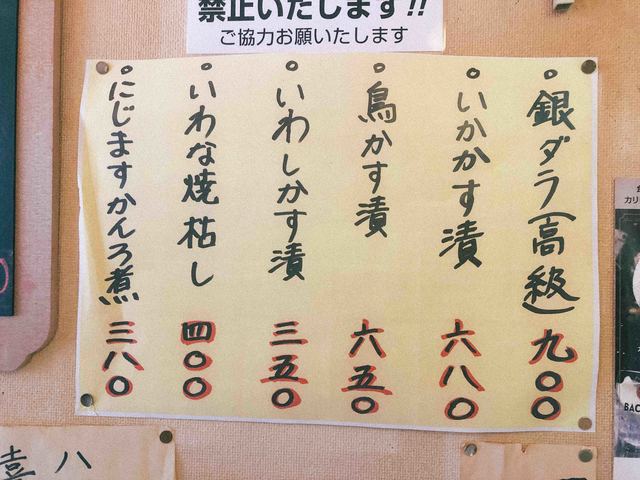 禁止いたします!!
ご協力お願いたします
銀ダラ(高級) 九〇〇
いかかす漬 六八〇
鳥かす漬 六五〇
いわしかす漬 三五〇
いわな焼枯し 四〇〇
にじますかんろ煮 三八〇
カリ
BAC
八
喜